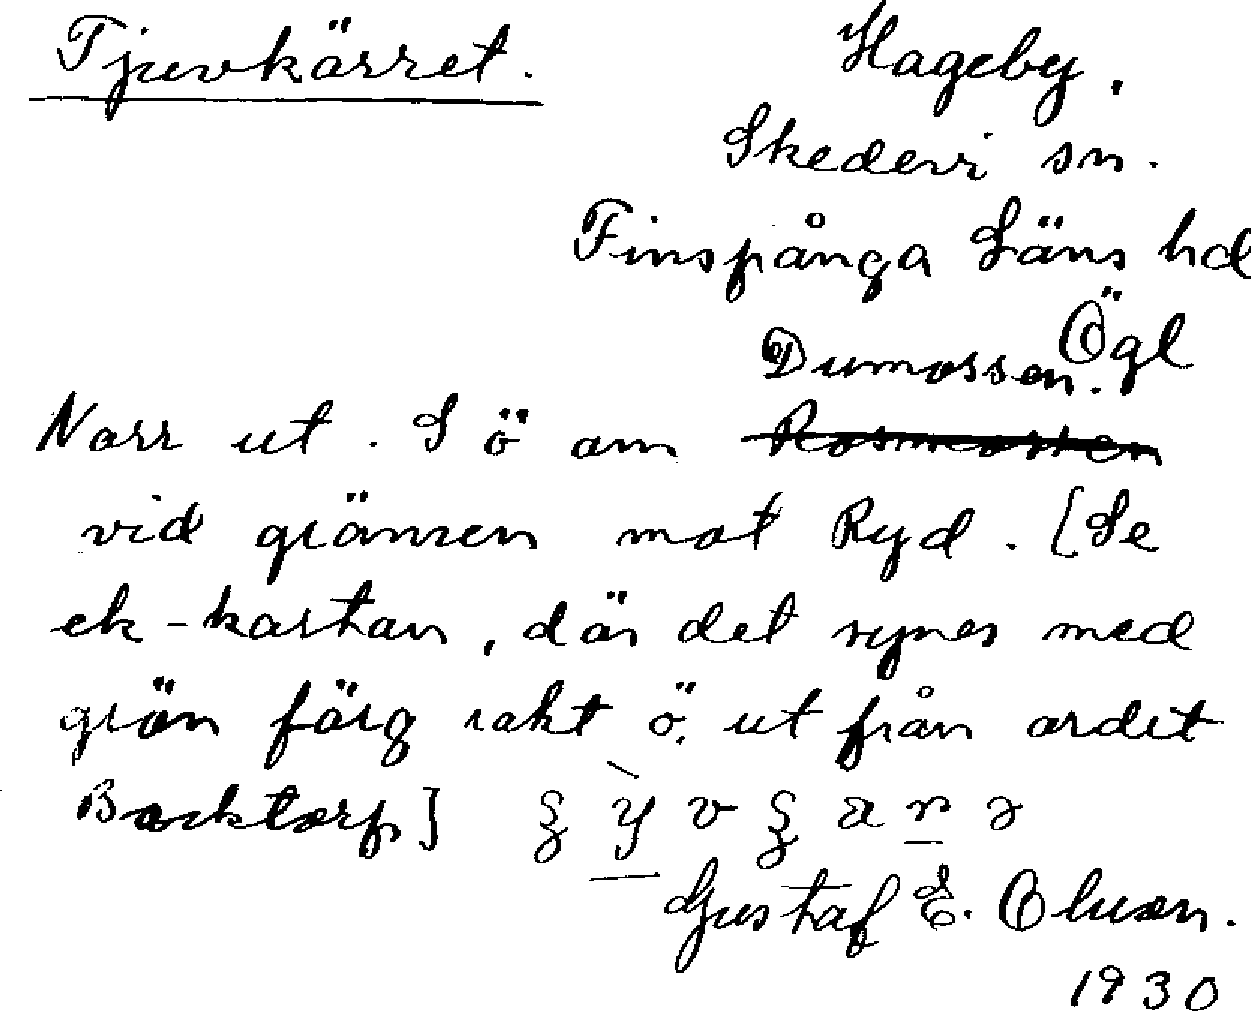 Tjuvkärret.
Hageby.
Skedevi sn.
Finspånga Läns hd
Ögl
Dumossen.
Norr ut. S ö om Rosmossen
vid gränsen mot Ryd. [Se
ek-kartan, där det synes med
grön färg rakt ö. ut från ordet
Backtorp]
Gustaf E. Olsson.
1930